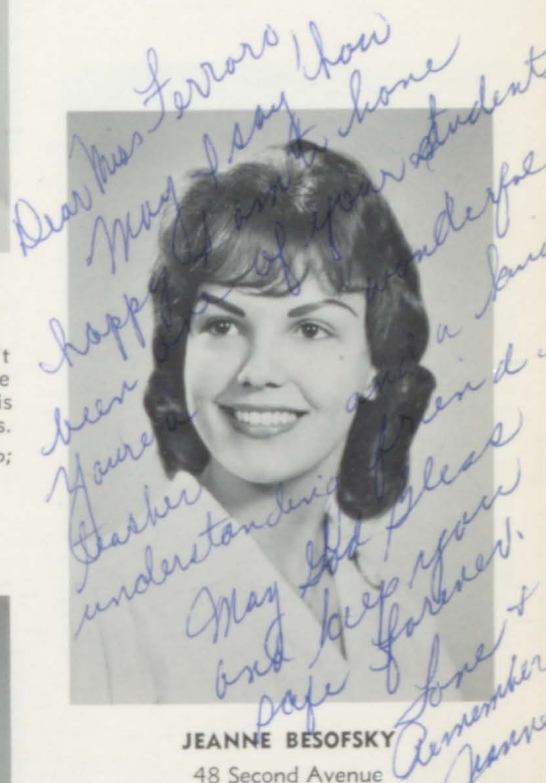 Dear Miss Ferraro,
May I say how
happy I am to have
been one of your students
You're a wonderful
teacher and a kind
understanding friend.
May God Bless
and keep you
safe forever.
Love &
Remember
Jeanne
JEANNE BESOFSKY
48 Second Avenue
t
e
is
s.
o;